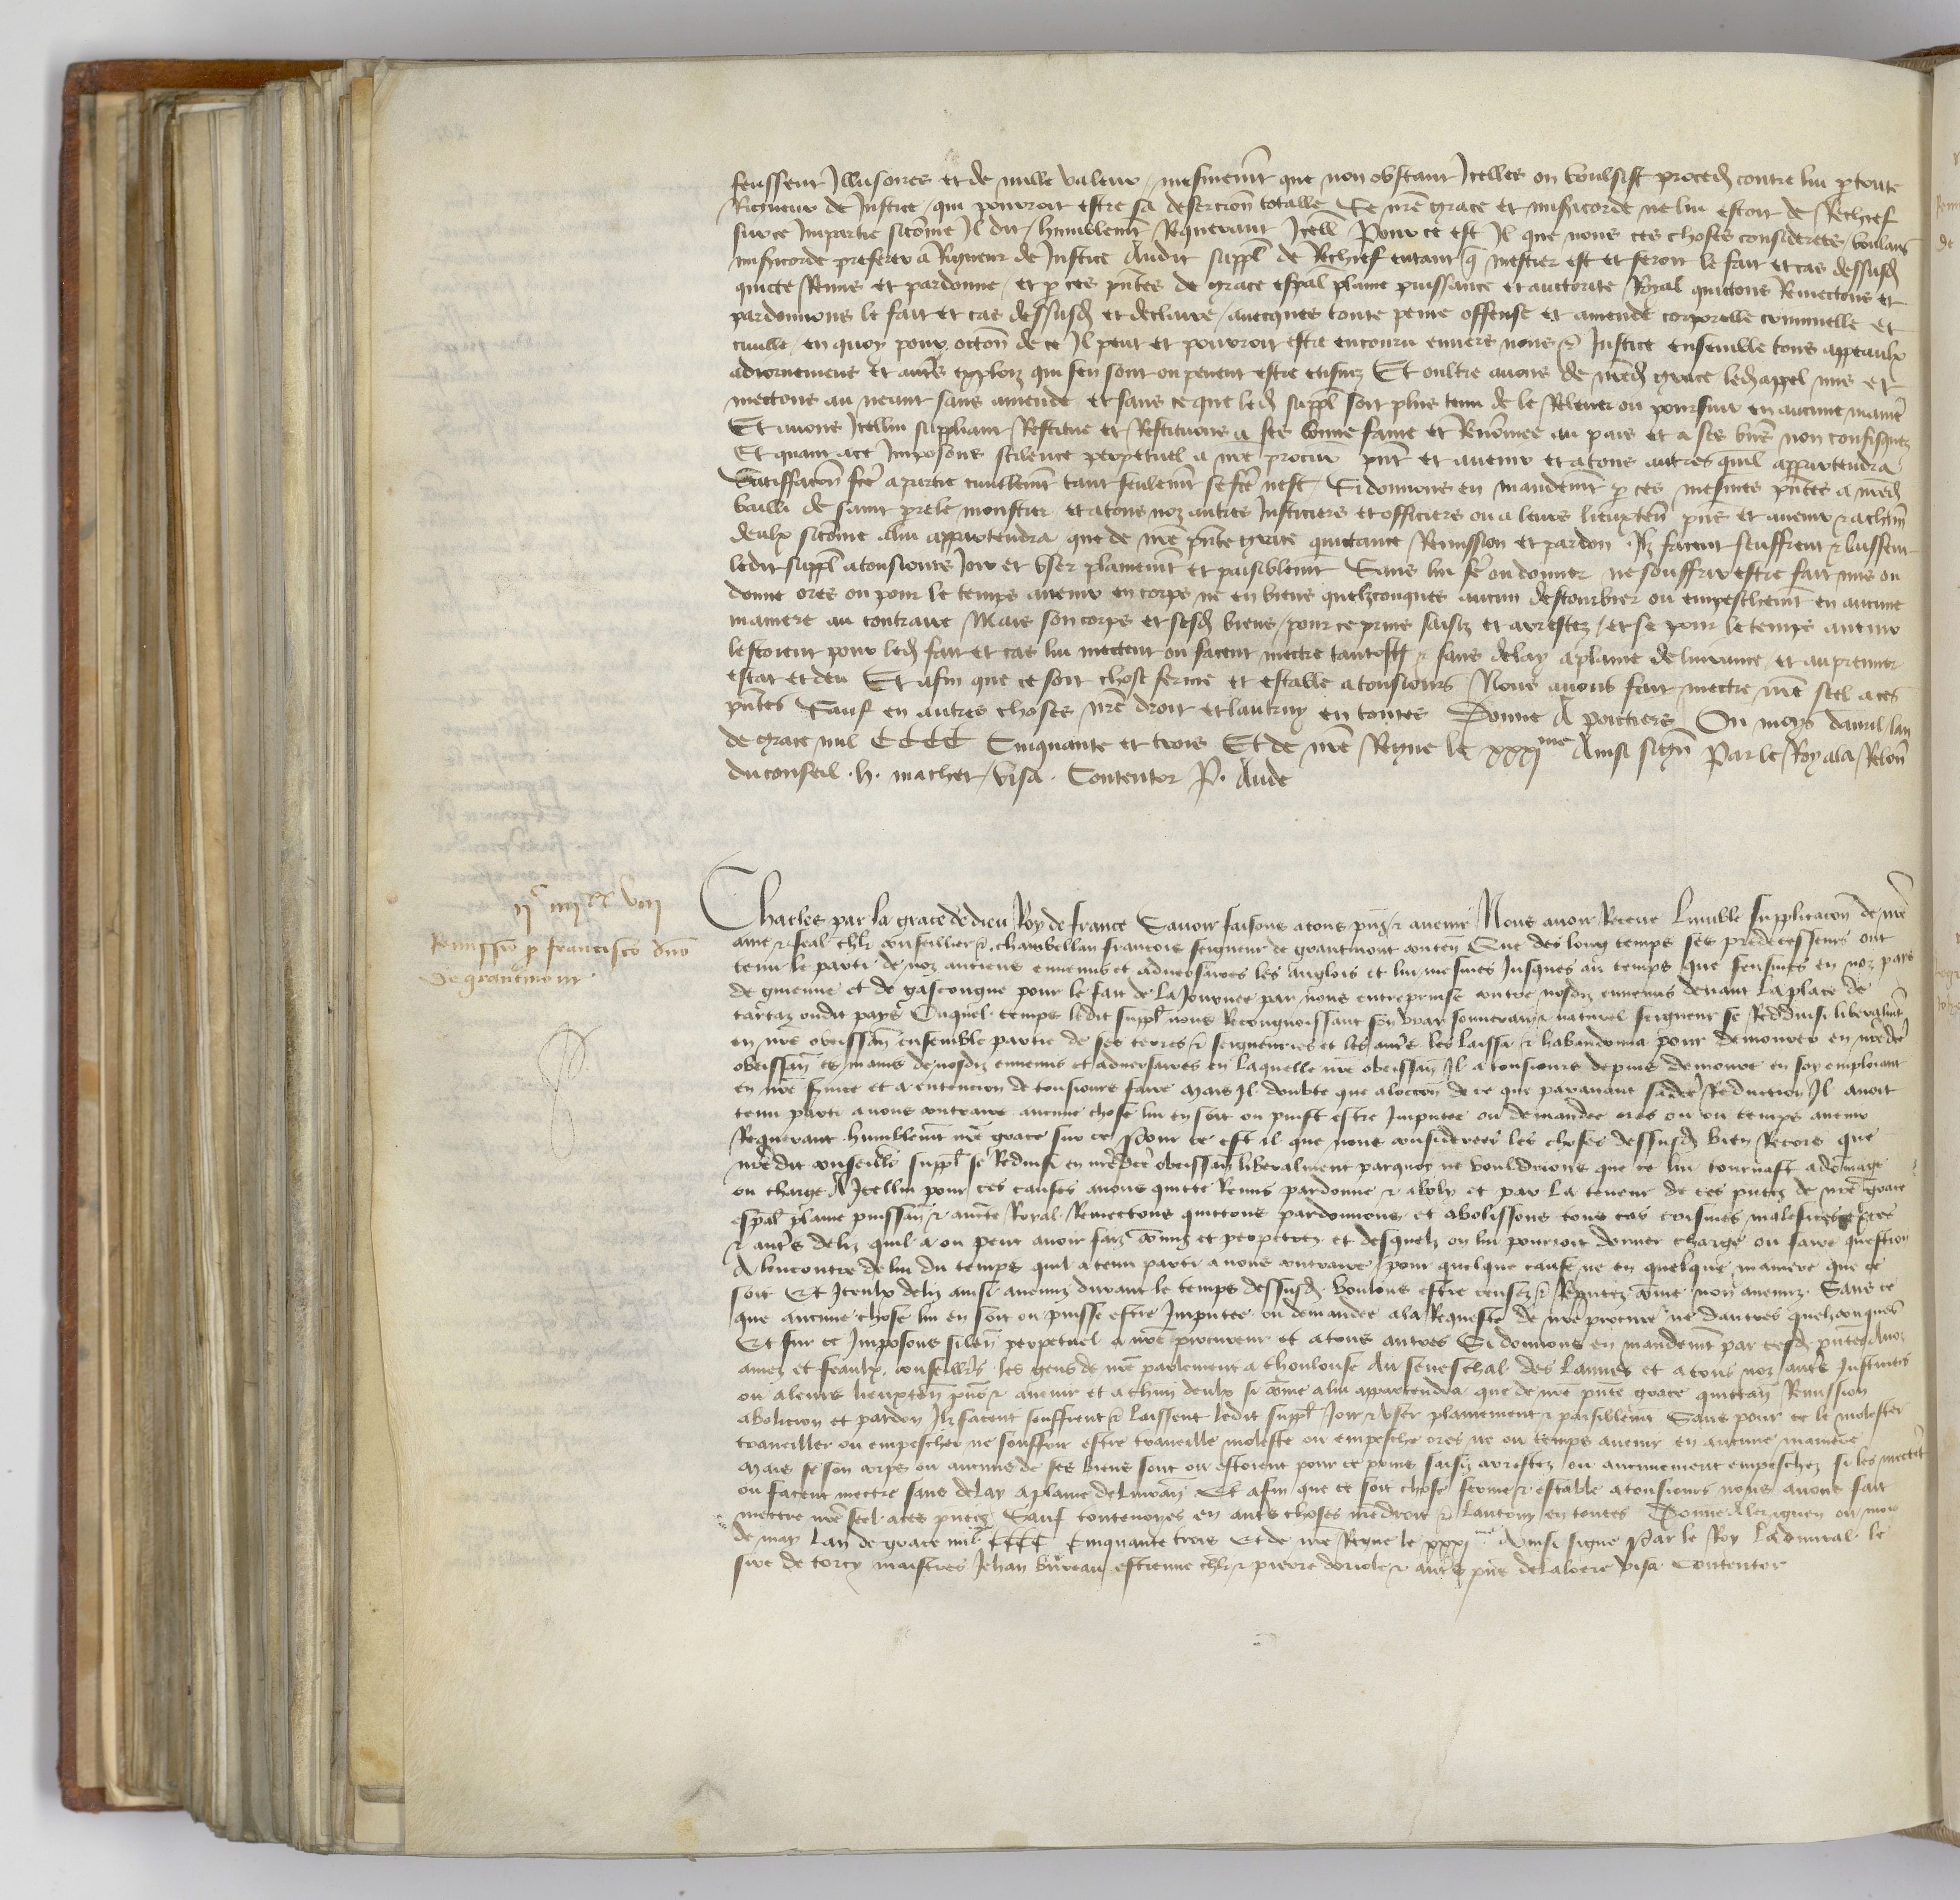 feussent Illusoires et de nulle valeur, mesmemt que non obstant Icelles on voulsist proced contre lui p toute
Rigueur de Justice, qui pourroit estre sa desercion totalle Se nre grace et misericorde ne lui estoit de Rechief
sur ce Impartie sicome Il dit, humblemt Requerant Icell Pour ce est Il que nous ces choses considerees, voulans
misericorde preferer a Rigueur de Justice Audit suppl de Rechief entant q mestier est et seroit le fait et cas dessusd
quicte Remis et pardonne, et p ces pntes de grace espal plaine puissance et auctorite Royal quictons Remectons et
pardonnons le fait et cas dessusd et declaire, avecques toute peine offense et amende corporelle criminelle et
civille, en quoy pour occon de ce Il peut et pourroit estre encouru envers nous & Justice ensemble tous appeaulx
adiornemens et autrs explois qui sen sont ou pevent estre ensuiz Et oultre avons de nred grace led appel mis et
mectons au neant sans amende et sans ce que led suppl soit plus tenu de le Relever ou poursuir en aucune manie
Et avons Icellui suppliant Restitue et Restituons a ses bonne fame et Renomee au pais et a ses biens non confisquez
Et quant ace Imposons scilence perpetuel a nre procur pnt et avenir et atous autres quil appartendra
Satisfacon fcte a partie civillemt tant seulemt se fcte nest, Si donnons en mandemt p ces mesmes pntes a nred
bailli de saint pierele monstier et atous noz autres Justiciers et officiers ou a leurs lieuxten pns et avenir & achun
deulx sicome alui appartendra que de nre pnte grace quictance Remission et pardon Ilz facent seuffrent & laissent
ledit suppl atousiours Joir et user plainemt et paisiblemt Sans lui fe ou donner ne souffrir estre fait mis ou
donne ores ou pour le temps avenir en corps ne en biens quelzconques aucun destourbier ou empeschemt en aucune
maniere au contraire Mais son corps et sesd biens, pour ce prins saisiz et arrestez, et se pour le temps avenir
lestoient pour led fait et cas lui mectent ou facent mectre tantost & sans delay a plaine delivrance, et au premier
estat et deu Et afin que ce soit chose ferme et estable a tousiours Nous avons fait mectre nre seel a ces
pntes Sauf en autres choses nre droit et lautruy en toutes Donne A poictiers Ou moys davril, lan
de grace mil CCCC Cinquante et trois Et de nre Regne le xxximᵉ Ainsi signe Par le Roy ala Relon
du conseil . h. macher, visa . Contentor P. Aude
ijc iiijxx viij
Remissio p francisco dno
de grantmont
Charles par la grace de dieu Roy de france Savoir faisons atous pns & avenir Nous avoir Receue Lumble supplicacon de nre
ame & feal chlr conseillier & chambellan francois seigneur de grantmont conten Que des long temps ses predecesseurs ont
tenu le parti de noz anciens ennemis et adversaires les anglois et lui mesmes Jusques au temps que feusmes en noz pais
de guienne et de gascongne pour le fait de La Journee par nous entreprinse contre nosdiz ennemis devant La place de
tartaz oudit pays Ouquel temps ledit suppl nous Recongnoissant son vray souverain & naturel seigneur se Redduisi liberalmt
en nre obeissan ensemble partie de ses terres & seigneuries et les autrs les laissa & habandonna pour demourer en nredte
obeissan es mains de nosdiz ennemis et adversaires en laquelle nre obeissan Il a tousiours depuis demoure en soy emploiant
en nre service et a entencion de tousiours faire Mais Il doubte que aloccon de ce que paravant sadte Reduction Il avoit
tenu parti a nous contraire aucune chose lui en soit ou puist estre Imputee ou demandee ores ou ou temps avenir
Requerant humblemt nre grace sur ce Pour ce est il que nous considerees les choses dessusd bien Recors que
nredit conseillr suppl se Reduisi en nredicte obeissan liberalment parquoy ne vouldrions que ce lui tournast a domage
ou charge A Icellui pour ces causes avons quicte Remis pardonne & aboly et par La teneur de ces pntes de nre grace
espal plaine puissan & aucte Royal Remectons quictons pardonnons et abolissons tous cas crismes malefices exces
& autrs deliz quil a ou peut avoir faiz comis et perpetrez et desquelz on lui pourroit donner charge ou faire question
A lencontre de lui du temps quil a tenu parti a nous contraire pour quelque cause ne en quelque maniere que ce
soit Et Iceulx deliz ainsi avenuz durant le temps dessusd voulons estre censez & Reputez come non avenuz Sans ce
que aucune chose lui en soit ou puisse estre Imputee ou demandee ala Requeste de nre procur ne dautres quelzconques
Et sur ce Imposons silen perpetuel a nre procureur et atous autres Si donnons en mandemt par cesd pntes A noz
amez et feaulx conseillrs les gens de nre parlement a thoulouse Au seneschal des Lannes et a tous noz autrs Justiciers
ou aleurs lieuxten pns & avenir et a chun deulx si come alui appartendra que de nre pnte grace quictan Remission
abolicion et pardon Ilz facent souffrent & laissent ledit suppl Joir & user plainement & paisiblemt Sans pour ce le molester
travciller ou empescher ne souffrir estre traveille moleste ou empesche ores ne ou temps avenir en aucune maniere
Mais se son corps ou aucuns de ses biens sont ou estoient pour ce prins saisiz arrestez ou aucunement empeschez si les mectet
ou facent mectre sans delay a plaine delivran Et afin que ce soit chose ferme & estable a tousiours nous avons fait
mectre nre seel a ces pntes Sauf toutevoyes en autrs choses nre droit & lautruy en toutes Donne A lezignen ou mois
de may Lan de grace mil CCCC Cinquante trois Et de nre Regne le xxxiᵐᵉ Ainsi signe Par le Roy Ladmiral le
sire de torcy maistres Jehan bureau estienne chlr & pierre doriole & autrs pns delaloere Visa Contentor